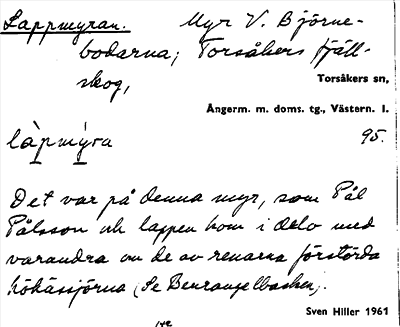 Lappmyran. Myr V. Björne-
bodarna; Torsåkers fjäll-
skog,
Torsåkers sn,
Ångerm. m. doms. tg., Västern. l.
95.
làpmýra
Det var på denna myr, som Pål
Pålsson och lappen kom i delo med
varandra om de av renarna förstörda
hökässjorna (Se Benrangelbacken).
Sven Hiller 1961